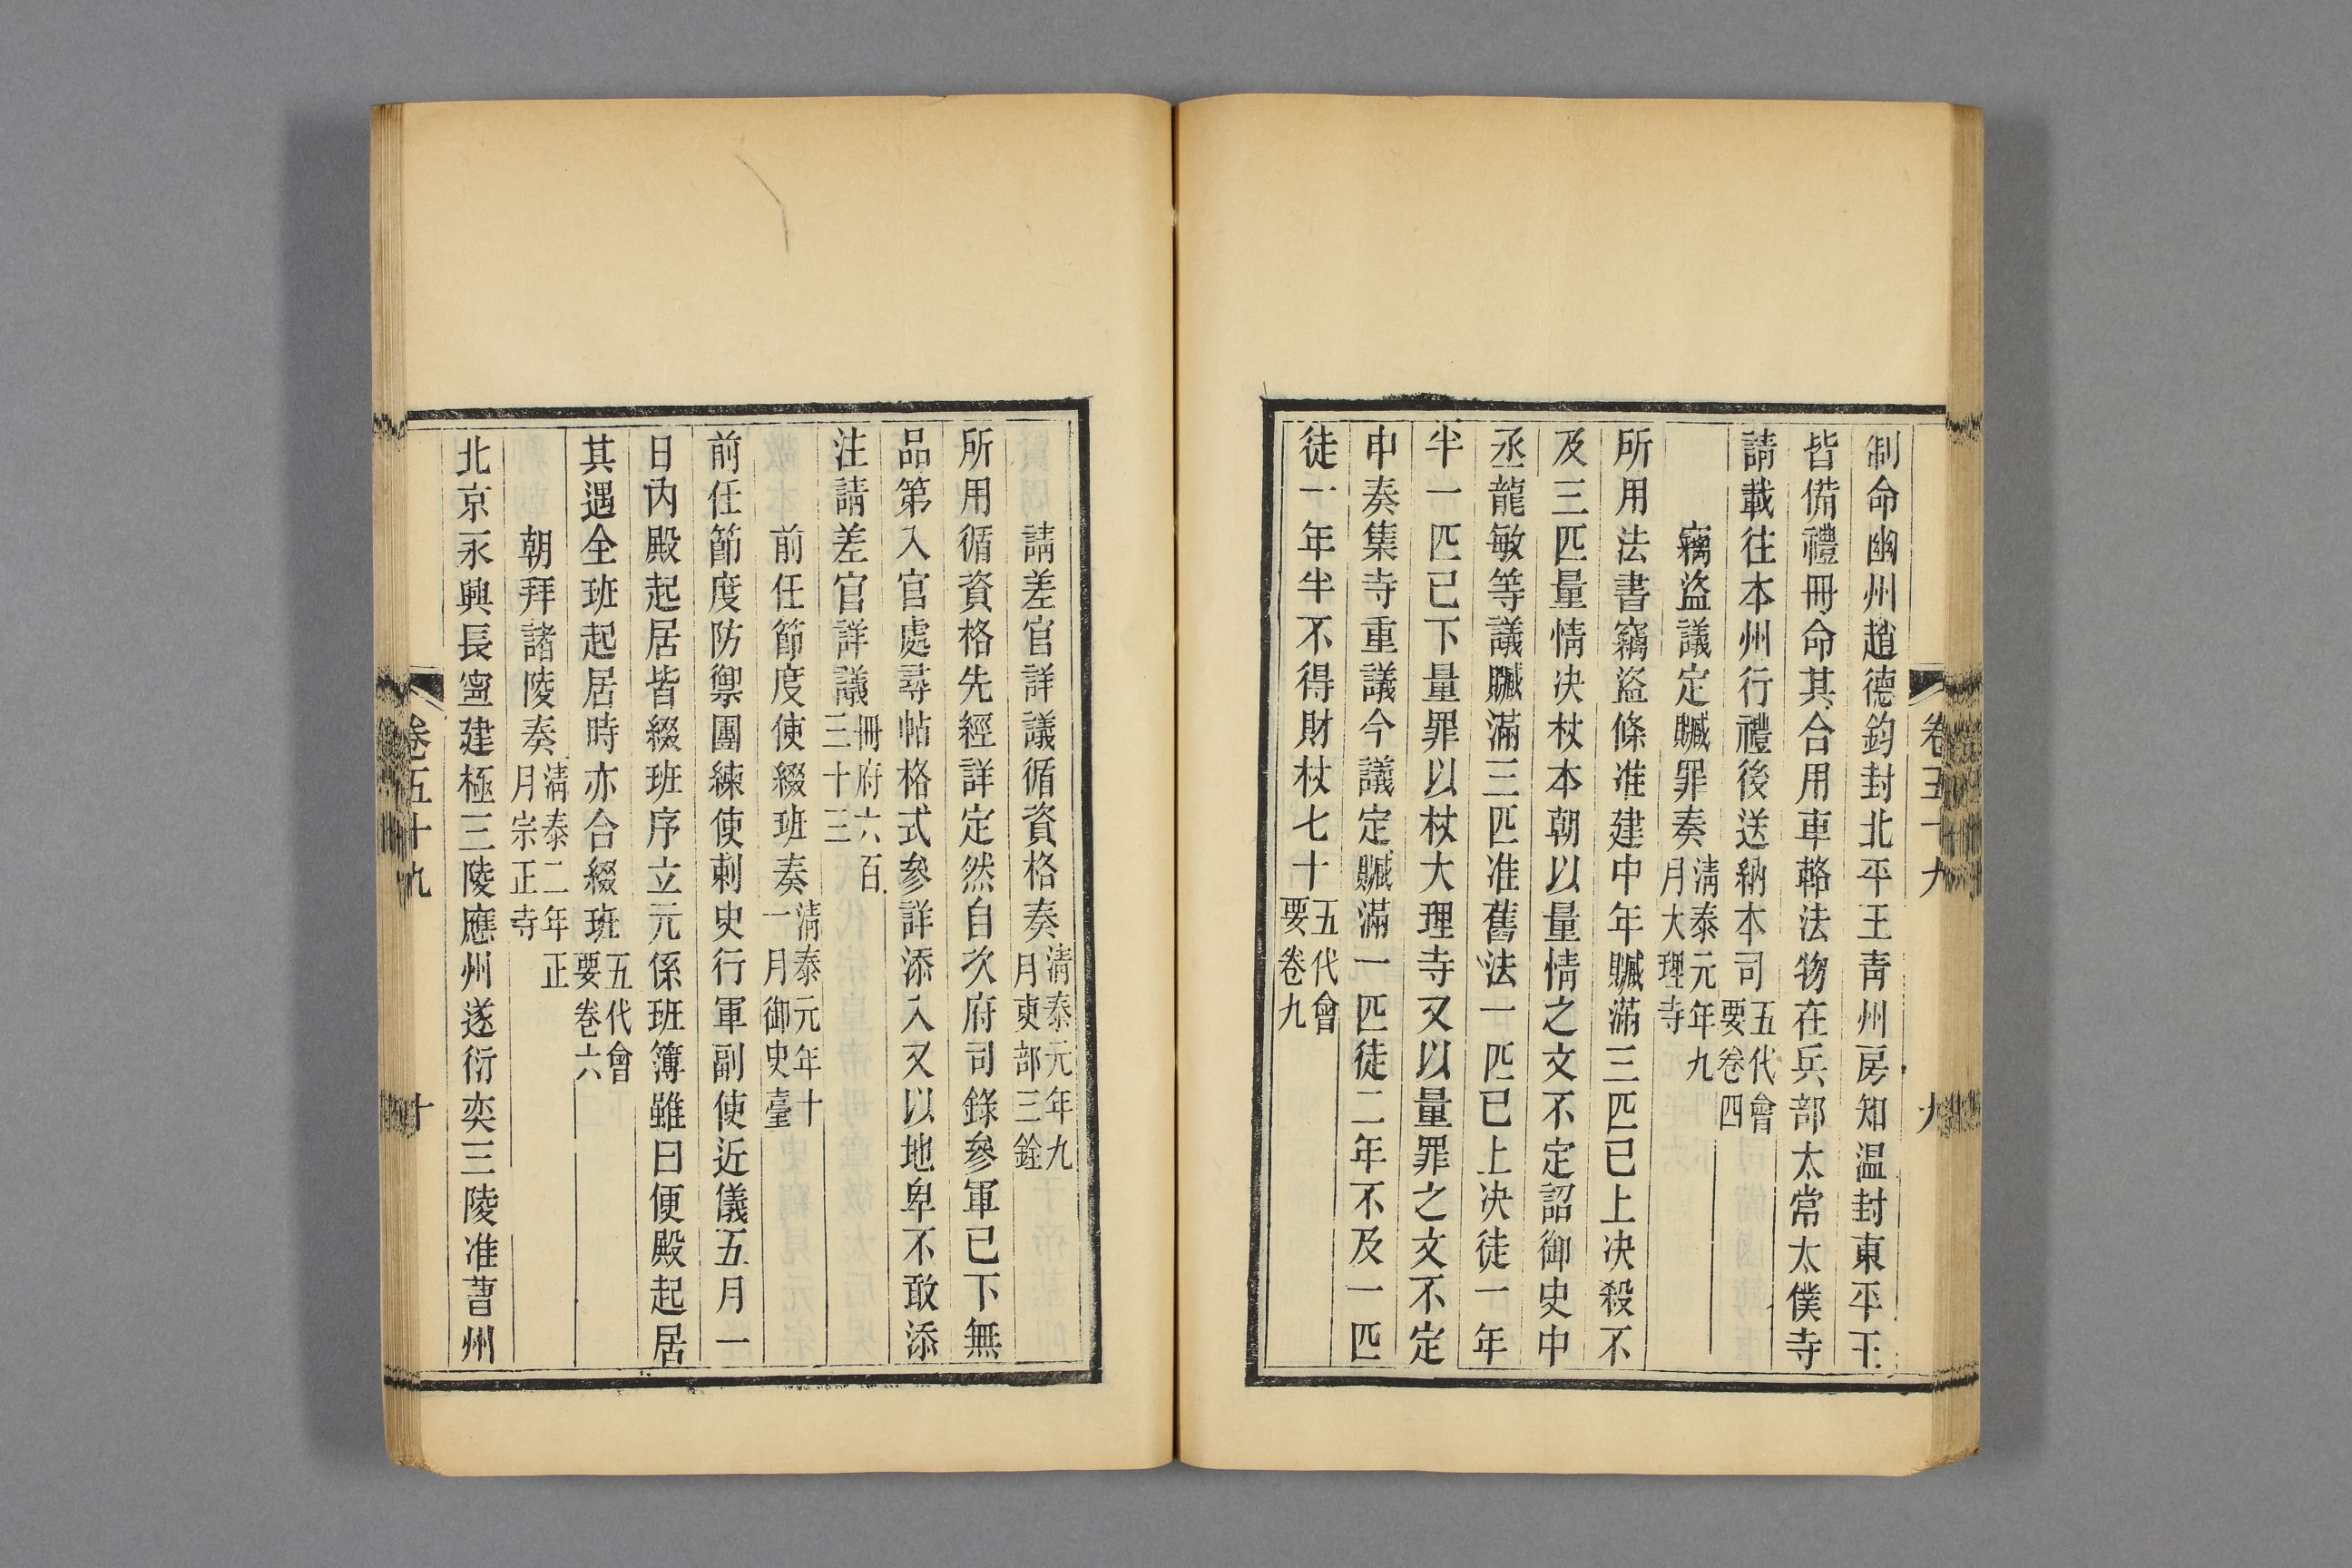 卷五十九
九
制命幽州趙德鈞封北平王青州房知温封東平王
皆備禮冊命其合用車輅法物在兵部太常太僕寺
請載往本州行禮後送納本司五代會要卷四
竊盜議定贓罪奏清泰元年九月大理寺
所用法書竊盜條准建中年贓滿三匹已上决殺不
及三匹量情决杖本朝以量情之文不定詔御史中
丞龍敏等議贓滿三匹准舊法一匹已上决徒一年
半一匹已下量罪以杖大理寺又以量罪之文不定
申奏集寺重議今議定贓滿一匹徒二年不及一匹
徒一年半不得財杖七十五代會要卷九
請差官詳議循資格奏清泰元年九月吏部三銓
所用循資格先經詳定然自次府司錄參軍已下無
品第入官處尋帖格式參詳添入又以地卑不敢添
注請差官詳議冊府六百三十三
前任節度使綴班奏清泰元年十一月御史臺
前任節度防禦團練使刺史行軍副使近儀五月一
日內殿起居皆綴班序立元係班簿雖曰便殿起居
其遇全班起居時亦合綴班五代會要卷六
朝拜諸陵奏清泰二年正月宗正寺
北京永興長寧建極三陵應州遂衍奕三陵准曹州
卷五十九
十